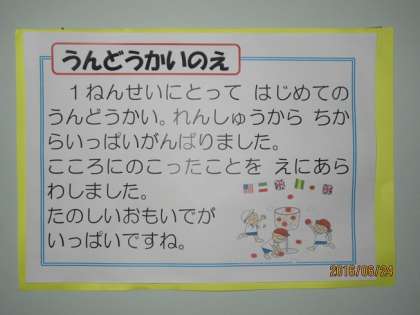 うんどうかいのえ
１ねんせいにとって はじめての
うんどうかい。れんしゅうから ちか
らいっぱいがんばりました。
こころにのこったことを えにあら
わしました。
たのしいおもいでが
いっぱいですね。
2016/06/24